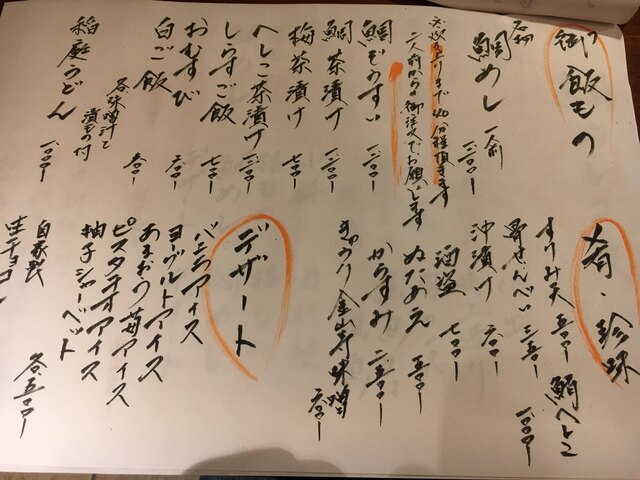 御飯もの
名物
鯛めし 一人前 一、二〇〇ー
※炊き上りまで40分程頂きます
二人前からの御注文でお願いします
鯛ぞうすい 一、二〇〇ー
鯛茶漬け 一、二〇〇ー
梅茶漬け 七〇〇ー
へしこ茶漬け 一、二〇〇ー
しらすご飯 七〇〇ー
おむすび 六〇〇ー
白ご飯 五〇〇ー
各味噌汁と
漬もの付
稲庭うどん 一、〇〇〇ー
肴・珍味
すりみ天 五〇〇ー
鯖へしこ 一、〇〇〇ー
骨せんべい 三五〇ー
沖漬け 六〇〇ー
酒盗 七〇〇ー
ぬたあえ 五〇〇ー
からすみ 二、五〇〇ー
きゅうり金山寺味噌 六〇〇ー
デザート
バニラアイス
ヨーグルトアイス
あまおう苺アイス
ピスタチオアイス
柚子シャーベット
自家製
生チョコ
各五〇〇ー